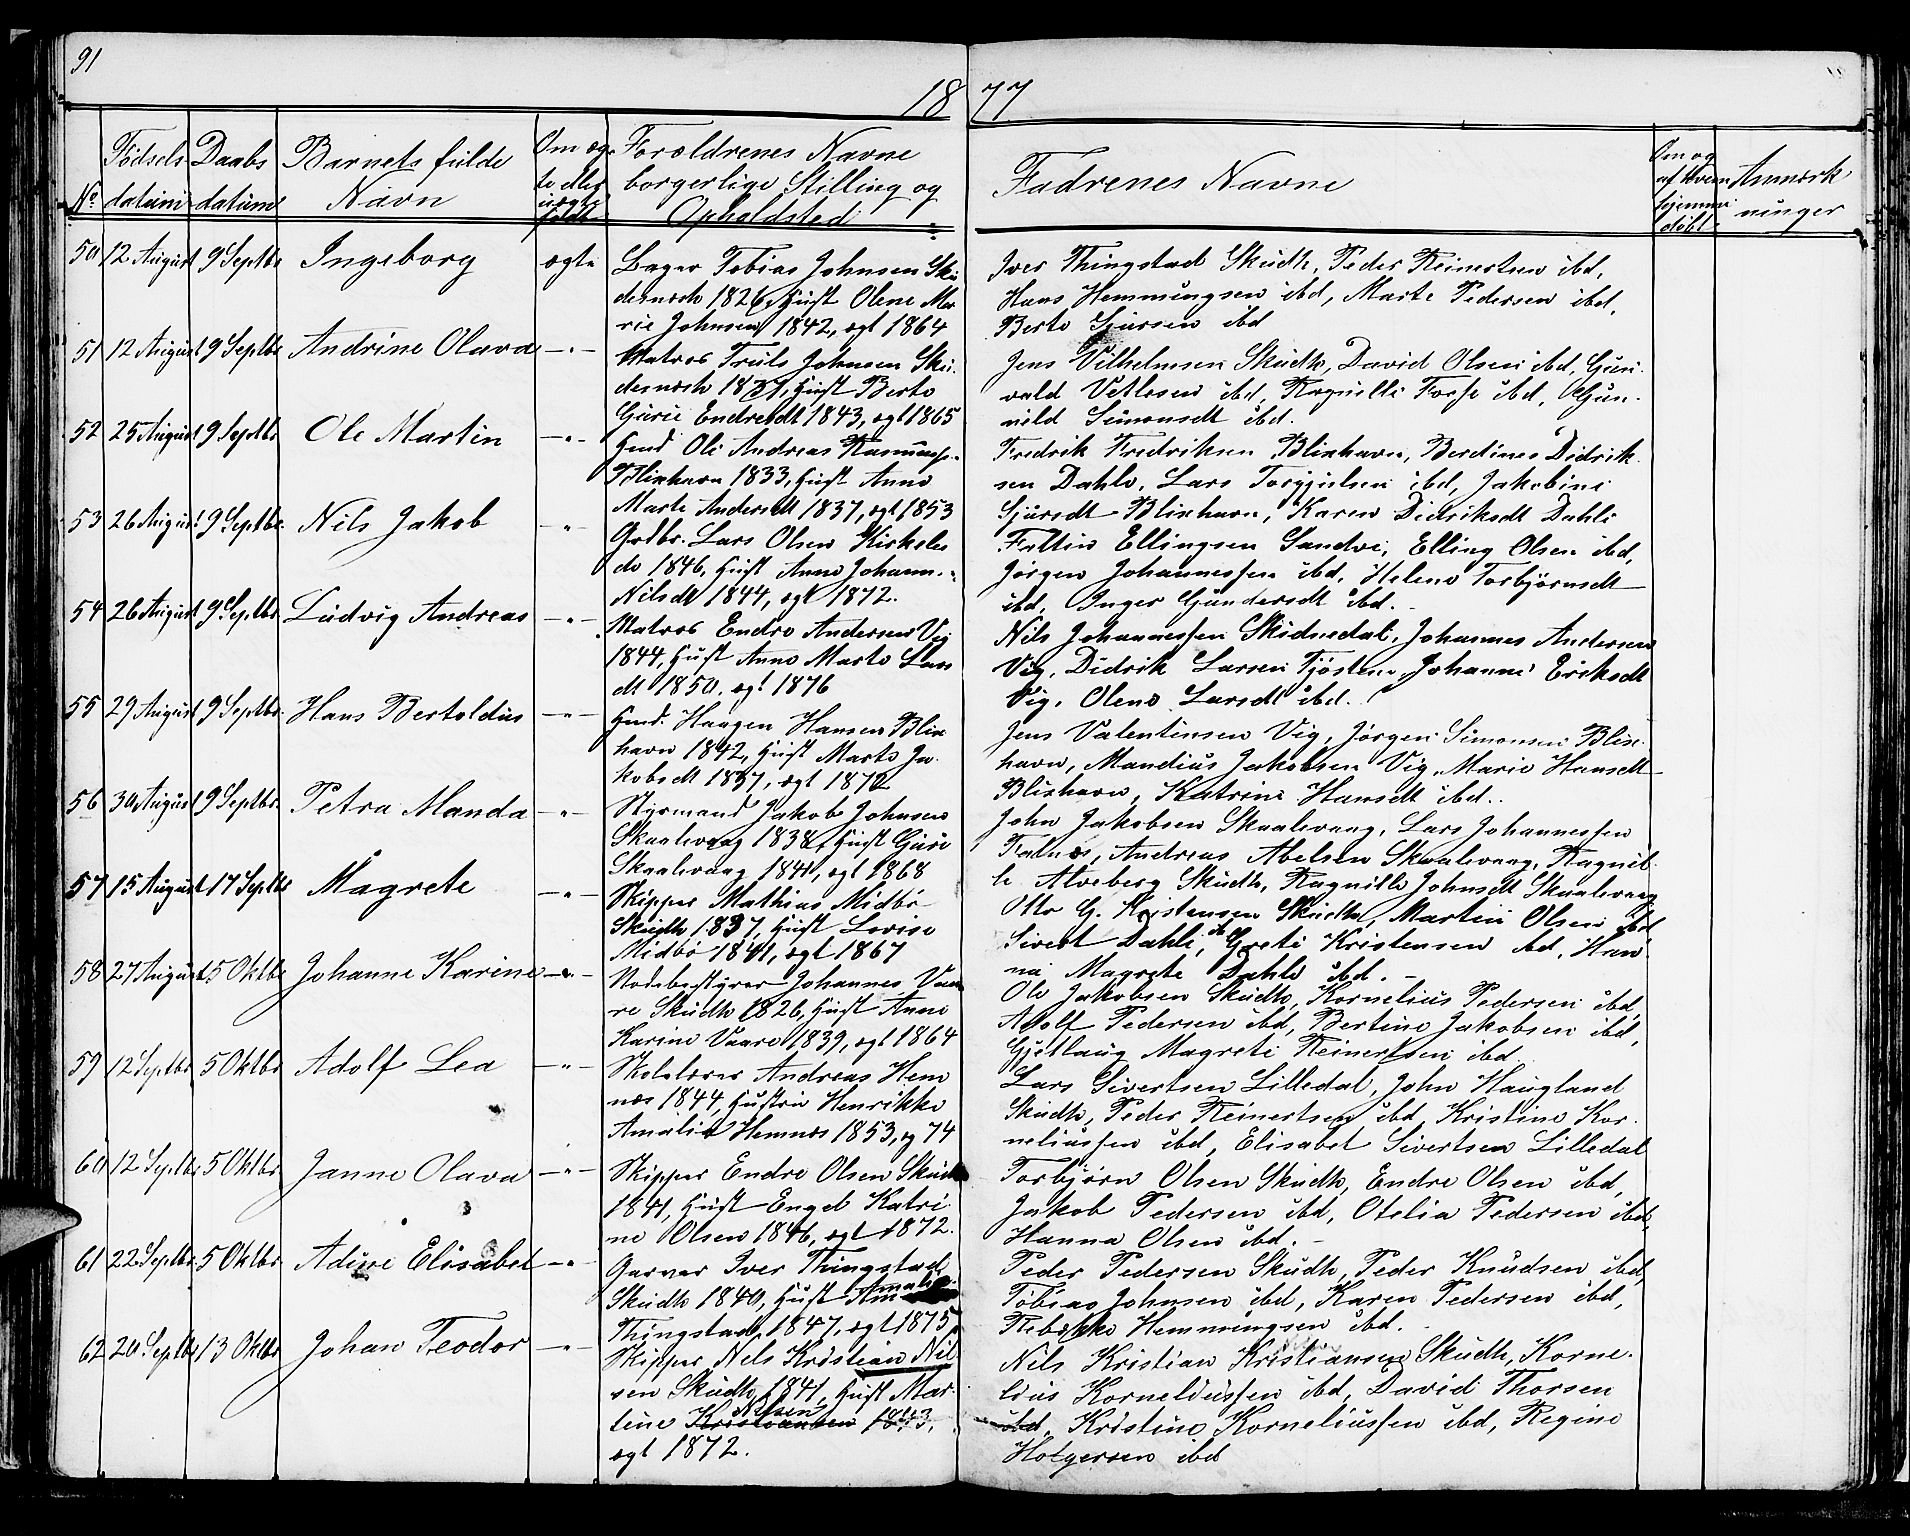 91
18 77
No. Fødsels datum Daabs datum Barnets fulde Navn Om ægte eller uægte født Forældrenes Navne borgerlige Stilling og Opholdsted Fadrenes Navne Om og af hvem hjemme døbt Anmærk ninger
50 12 August 9 Septbr Ingeborg ægte
Bager Tobias Johnsen Sku
desnæsh 1826, Hust Olene Ma
rie Johnsen 1842, ægt 1864
Iver Thingstad Skudh, Peder Reinertsen ibd,
Hans Hemmingsen ibd, Marte Pedersen ibd,
Berte Sjursen ibd
51 12 August 9 Septbr Andrine Olava -"-
Matros Truls Johnsen Sku
desnæsh Hust Berte
Gurie Endresdt 1843, ægt 1865
Jens Vilhelmsen Skudh, David Olsen ibd, Gun
vald Vetlesen ibd, Ragnille Fosse ibd, Gun
nild Simonsdt ibd.
52 25 August 9 Septbr Ole Martin -"-
Gmd Ole Andreas Rasmuss.
Blixhavn 1833, Hust Anne
Marte Andersdt 1837, ægt 1853
Fredrik Fredriksen Blixhavn, Berdines Didrik
sen Dahle, Lars Torgjelsen ibd, Jakobine
Sjursdt Blixhavn, Karen Didriksdt Dahle
53 26 August 9 Septbr Nils Jakob "
Grdbr. Lars Olsen Kirkele
de 1846, Hust Anne Johann.
Nilsdt 1844, ægt 1872.
Faltin Ellingsen Sandve, Elling Olsen ibd,
Jørgen Johannessen ibd, Helene Torbjørnsdt
ibd, Inger Gundersdt ibd.
54 26 August 9 Septbr Ludvig Andreas -"-
Matros Endre Andersen Vig
1844, Hust Anne Marte Lars
dt 1850, ægt 1876
Nils Johannessen Skudnsdal, Johannes Andersen
Vig, Didrik Larsen Tjøsten, Johanne Eriksdt
Vig, Olene Larsdt ibd.
55 29 August 9 Septbr. Hans Bertoldus -"-
Gmd. Haagen Hansen Blix
havn 1842, Hust Marte Ja
kobsdt 1837, ægt 1872
Jens Valentinsen Vig, Jørgen Simonsen Blix
havn, Mandius Jakobsen Vig, Marie Hansdt
Blixhavn, Katrine Hansdt ibd.
56 30 August 9 Septbr. Petra Manda -"-
Styrmand Jakob Johnsen
Skaalevaag 1838, Hust Guri
Skaalevaag 1841, ægt 1868
John Jakobsen Skaalevaag, Lars Johannessen
Falnes, Andreas Abelsen Skaalevaag, Ragnil
le Alveberg Skudh, Ragnille Johnsdt Skaalevaag
57 15 August 17 Septbr Magrete -"-
Skipper Mathias Midbø
Skudh 1837, Hust Lovise
Midbø 1841, ægt 1867
Otto G. Kristensen Skudh, Martin Olsen ibd
Sivert Dahle, Grete Kristensen ibd, Han
na Magrete Dahle ibd.
58 27 August 5 Oktbr Johanne Karine -"-
Stedbestyrer Johannes Vaa
re Skudh 1826, Hust Anne
Karine Vaare 1839, ægt 1864
Ole Jakobsen Skudh, Kornelius Pedersen ibd,
Adolf Pedersen ibd, Bertine Jakobsen ibd,
Gjetlaug Magrete Reinertsen ibd.
59 12 Septbr 5 Oktbr Adolf Lea -"-
Skolelærer Andreas Hem
næs 1844, Hustru Henrikke
Amalie Hemnæs 1853, æg 74
Lars Sivertsen Lilledal, John Haugland
Skudh, Peder Reinertsen ibd, Kristine Kor
neliussen ibd, Elisabet Sivertsen Lilledal
60 12 Septbr 5 Oktbr Janne Olava -"-
Skipper Endre Olsen Skudh
1841, Hust Engel Katri
ne Olsen 1846, ægt 1872.
Torbjørn Olsen Skudh, Endre Olsen ibd,
Jakob Pedersen ibd, Otelia Pedersen ibd,
Hanna Olsen ibd.
61 22 Septbr 5 Oktbr. Adine Elisabet -"-
Garver Iver Thingstad
Skudh 1840, Hust Amalie
Thingstad, 1847, ægt 1875
Peder Pedersen Skudh, Peder Knudsen ibd,
Tobias Johnsen ibd, Karen Pedersen ibd,
Rebekka Hemmingsen ibd.
62 20 Septbr 13 Oktbr Johan Teodor -"-
Skipper Nels Kristian Nil
sen Skudh, 1841, Hust Mar
tine Kristiansen Nilsen 1843,
ægt 1872.
Nils Kristian Kristiansen Skudh, Korne
lius Korneliussen ibd, David Thorsen
ibd, Kristine Korneliussen ibd, Regine
Holgersen ibd